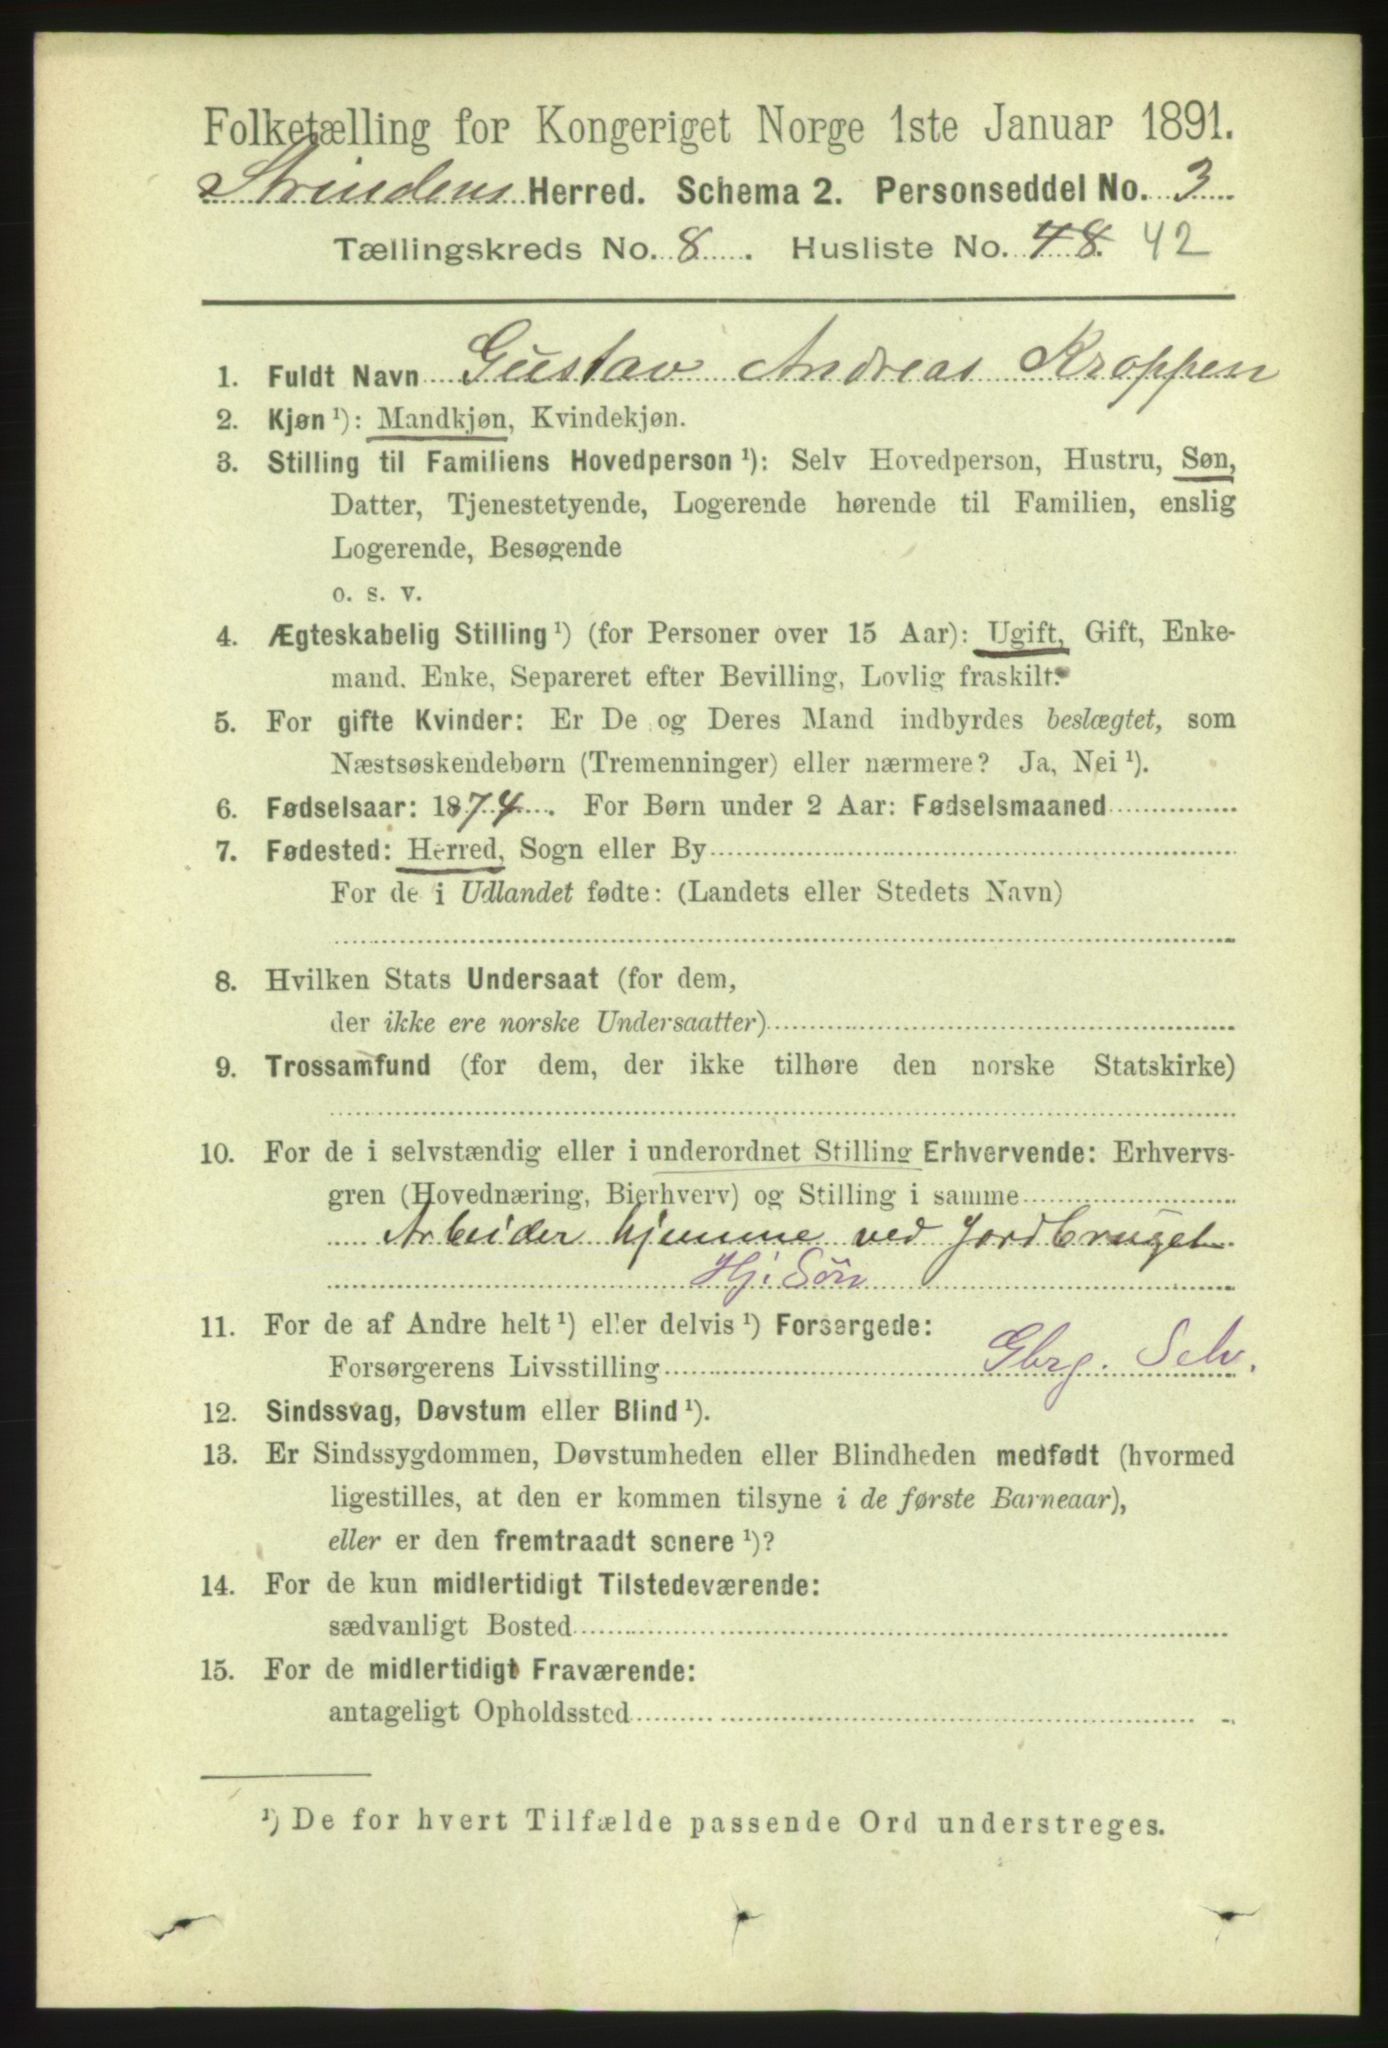 Folketælling for Kongeriget Norge 1ste Januar 1891.
Strindens Herred. Schema 2. Personseddel No. 3
Tællingskreds No. 8. Husliste No. 48. 42
1. Fuldt Navn Gustav Andreas Kroppen
2. Kjøn ¹): Mandkjøn, Kvindekjøn.
3. Stilling til Familiens Hovedperson ¹): Selv Hovedperson, Hustru, Søn,
Datter, Tjenestetyende, Logerende hørende til Familien, enslig
Logerende, Besøgende
o. s. v.
4. Ægteskabelig Stilling ¹) (for Personer over 15 Aar): Ugift, Gift, Enke-
mand. Enke, Separeret efter Bevilling, Lovlig fraskilt.
5. For gifte Kvinder: Er De og Deres Mand indbyrdes beslægtet, som
Næstsøskendebørn (Tremenninger) eller nærmere? Ja, Nei ¹).
6. Fødselsaar: 1874. For Børn under 2 Aar: Fødselsmaaned
7. Fødested: Herred, Sogn eller By
For de i Udlandet fødte: (Landets eller Stedets Navn)
8. Hvilken Stats Undersaat (for dem,
der ikke ere norske Undersaatter)
9. Trossamfund (for dem, der ikke tilhøre den norske Statskirke)
10. For de i selvstændig eller i underordnet Stilling Erhvervende: Erhvervs-
gren (Hovednæring, Bierhverv) og Stilling i samme
Arbeider hjemme ved Jordbruget
Hj. Søn
11. For de af Andre helt ¹) eller delvis ¹) Forsørgede:
Forsørgerens Livsstilling Gbrg. Selv.
12. Sindssvag, Døvstum eller Blind ¹).
13. Er Sindssygdommen, Døvstumheden eller Blindheden medfødt (hvormed
ligestilles, at den er kommen tilsyne i de første Barneaar),
eller er den fremtraadt senere ¹)?
14. For de kun midlertidigt Tilstedeværende:
sædvanligt Bosted
15. For de midlertidigt Fraværende:
antageligt Opholdssted
¹) De for hvert Tilfælde passende Ord understreges.